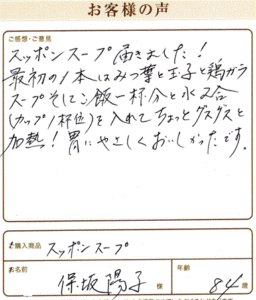 お客様の声
ご感想・ご意見
スッポンスープ届きました!
最初の1本はみつ葉と玉子と鶏ガラ
スープそしてご飯一杯分と水2合
(カップ1杯位)を入れてちょっとグスグスと
加熱!胃にやさしくおいしかったです。
ご購入商品 スッポンスープ
お名前 保坂陽子 様 年齢 84歳